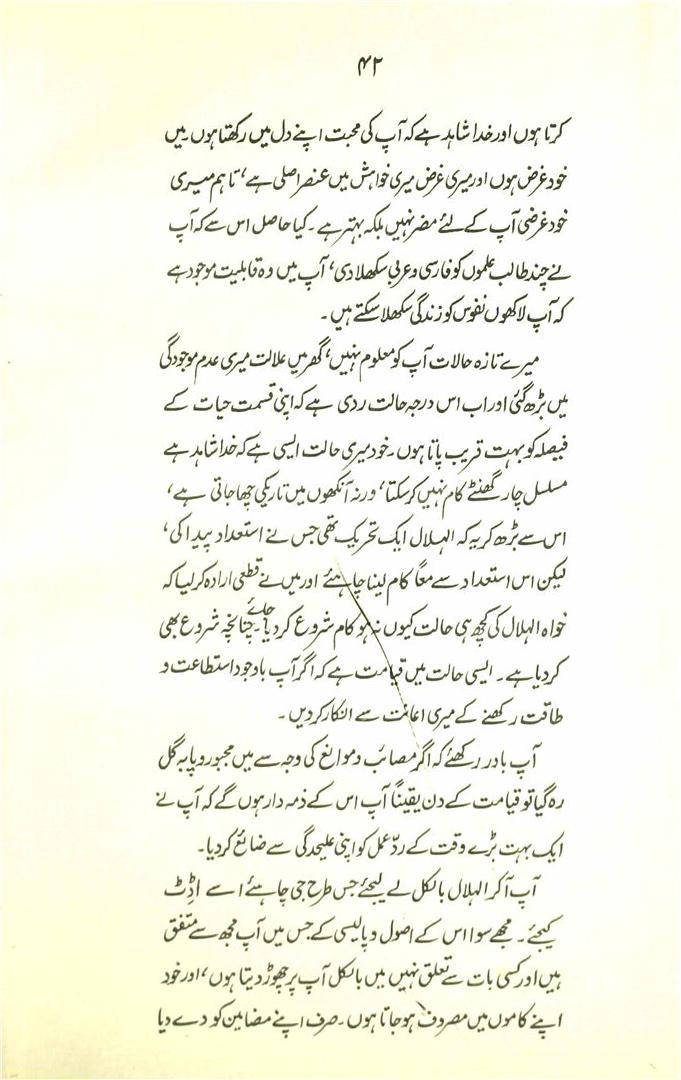 ۴۲
کرتا ہوں اور خدا شاہد ہے کہ آپ کی محبت اپنے دل میں رکھتا ہوں۔ میں
خود غرض ہوں اور میری غرض میری خواہش میں عنصر اصلی ہے، تاہم میری
خود غرضی آپ کے لئے مضر نہیں بلکہ بہتر ہے۔ کیا حاصل اس سے کہ آپ
نے چند طالب علموں کو فارسی و عربی سکھلا دی، آپ میں وہ قابلیت موجود ہے
کہ آپ لاکھوں نفوس کو زندگی سکھلا سکتے ہیں۔
میرے تازہ حالات آپ کو معلوم نہیں، گھر میں علالت میری عدم موجودگی
میں بڑھ گئی اور اب اس درجہ حالت ردی ہے کہ اپنی قسمت حیات کے
فیصلہ کو بہت قریب پاتا ہوں۔ خود میری حالت ایسی ہے کہ خدا شاہد ہے
مسلسل چار گھنٹے کام نہیں کر سکتا، ورنہ آنکھوں میں تاریکی چھا جاتی ہے،
اس سے بڑھ کر یہ کہ الہلال ایک تحریک تھی جس نے استعداد پیدا کی،
لیکن اس استعداد سے معاً کام لینا چاہئے اور میں نے قطعی ارادہ کر لیا کہ
خواہ الہلال کی کچھ ہی حالت کیوں نہ ہو کام شروع کر دیا جائے۔ چنانچہ شروع بھی
کر دیا ہے۔ ایسی حالت میں قیامت ہے کہ اگر آپ باوجود استطاعت و
طاقت رکھنے کے میری اعانت سے انکار کر دیں۔
آپ باور رکھئے کہ اگر مصائب و موانع کی وجہ سے میں مجبور و پابہ گل
رہ گیا تو قیامت کے دن یقیناً آپ اس کے ذمہ دار ہوں گے کہ آپ نے
ایک بہت بڑے وقت کے ردّ عمل کو اپنی علیحدگی سے ضائع کر دیا۔
آپ آکر الہلال بالکل لے لیجئے جس طرح جی چاہئے اسے اڈٹ
کیجئے۔ مجھے سوا اس کے اصول و پالیسی کے جس میں آپ مجھ سے متفق
ہیں اور کسی بات سے تعلق نہیں میں بالکل آپ پر چھوڑ دیتا ہوں، اور خود
اپنے کاموں میں مصروف ہو جاتا ہوں۔ صرف اپنے مضامین کو دے دیا